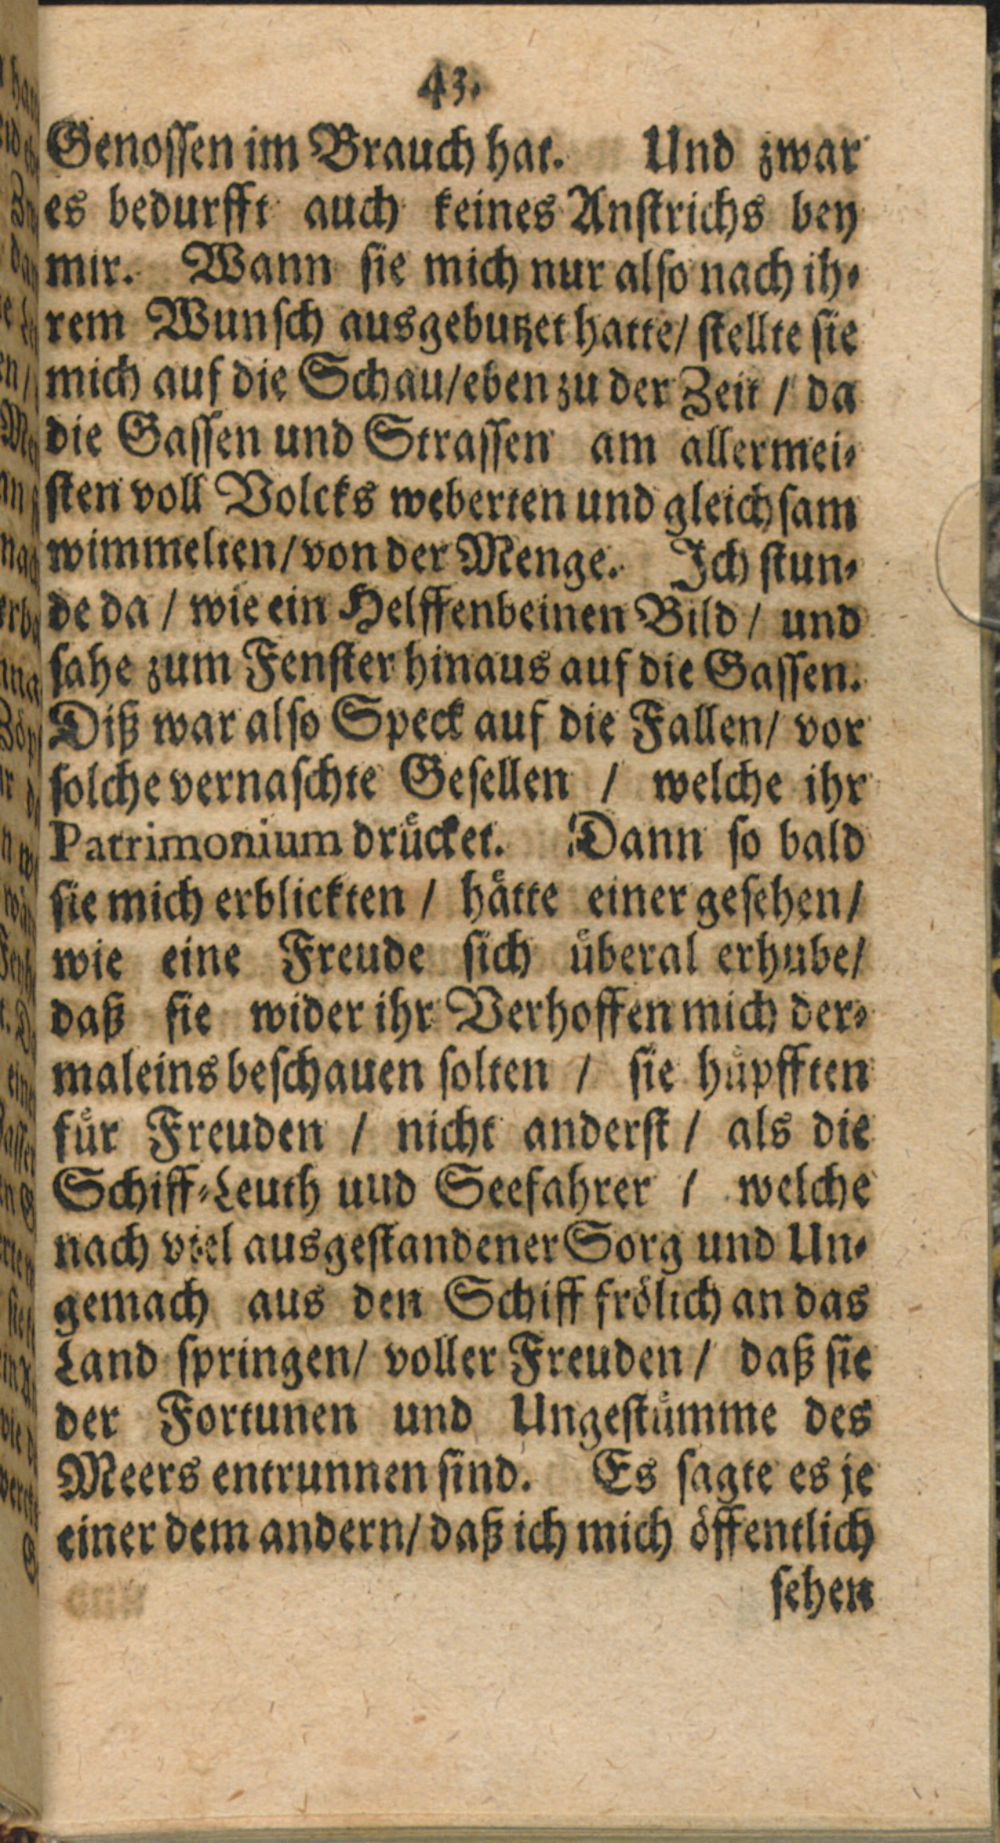 43.
Genossen im Brauch hat. Und zwar
es bedurfft auch keines Anstrichs bey
mir. Wann sie mich nur also nach ih-
rem Wunsch ausgebutzet hatte/ stellte sie
mich auf die Schau/eben zu der Zeit / da
die Gassen und Strassen am allermei-
sten voll Volcks weberten und gleichsam
wimmelten/ von der Menge. Ich stun-
de da / wie ein Helffenbeinen Bild / und
sahe zum Fenster hinaus auf die Gassen.
Diß war also Speck auf die Fallen/ vor
solche vernaschte Gesellen / welche ihr
Patrimonium drücket. Dann so bald
sie mich erblickten / hätte einer gesehen/
wie eine Freude sich überal erhube/
daß sie wider ihr Verhoffen mich der-
maleins beschauen solten / sie hüpfften
für Freuden / nicht anderst / als die
Schiff-Leuth uud Seefahrer / welche
nach viel ausgestandener Sorg und Un-
gemach aus den Schiff frölich an das
Land springen/ voller Freuden / daß sie
der Fortunen und Ungestümme des
Meers entrunnen sind. Es sagte es je
einer dem andern/ daß ich mich öffentlich
sehen